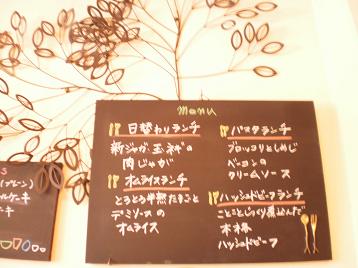 menu
日替わりランチ
新ジャガ、玉ネギの
肉じゃが
オムライスランチ
とろとろ半熟たまごと
デミソースの
オムライス
パスタランチ
ブロッコリとしめじ
ベーコンの
クリームソース
ハッシュドビーフランチ
ことことじっくり煮込んだ
本格
ハッシュドビーフ
S
(プレーン)
ルケーキ
ーキ